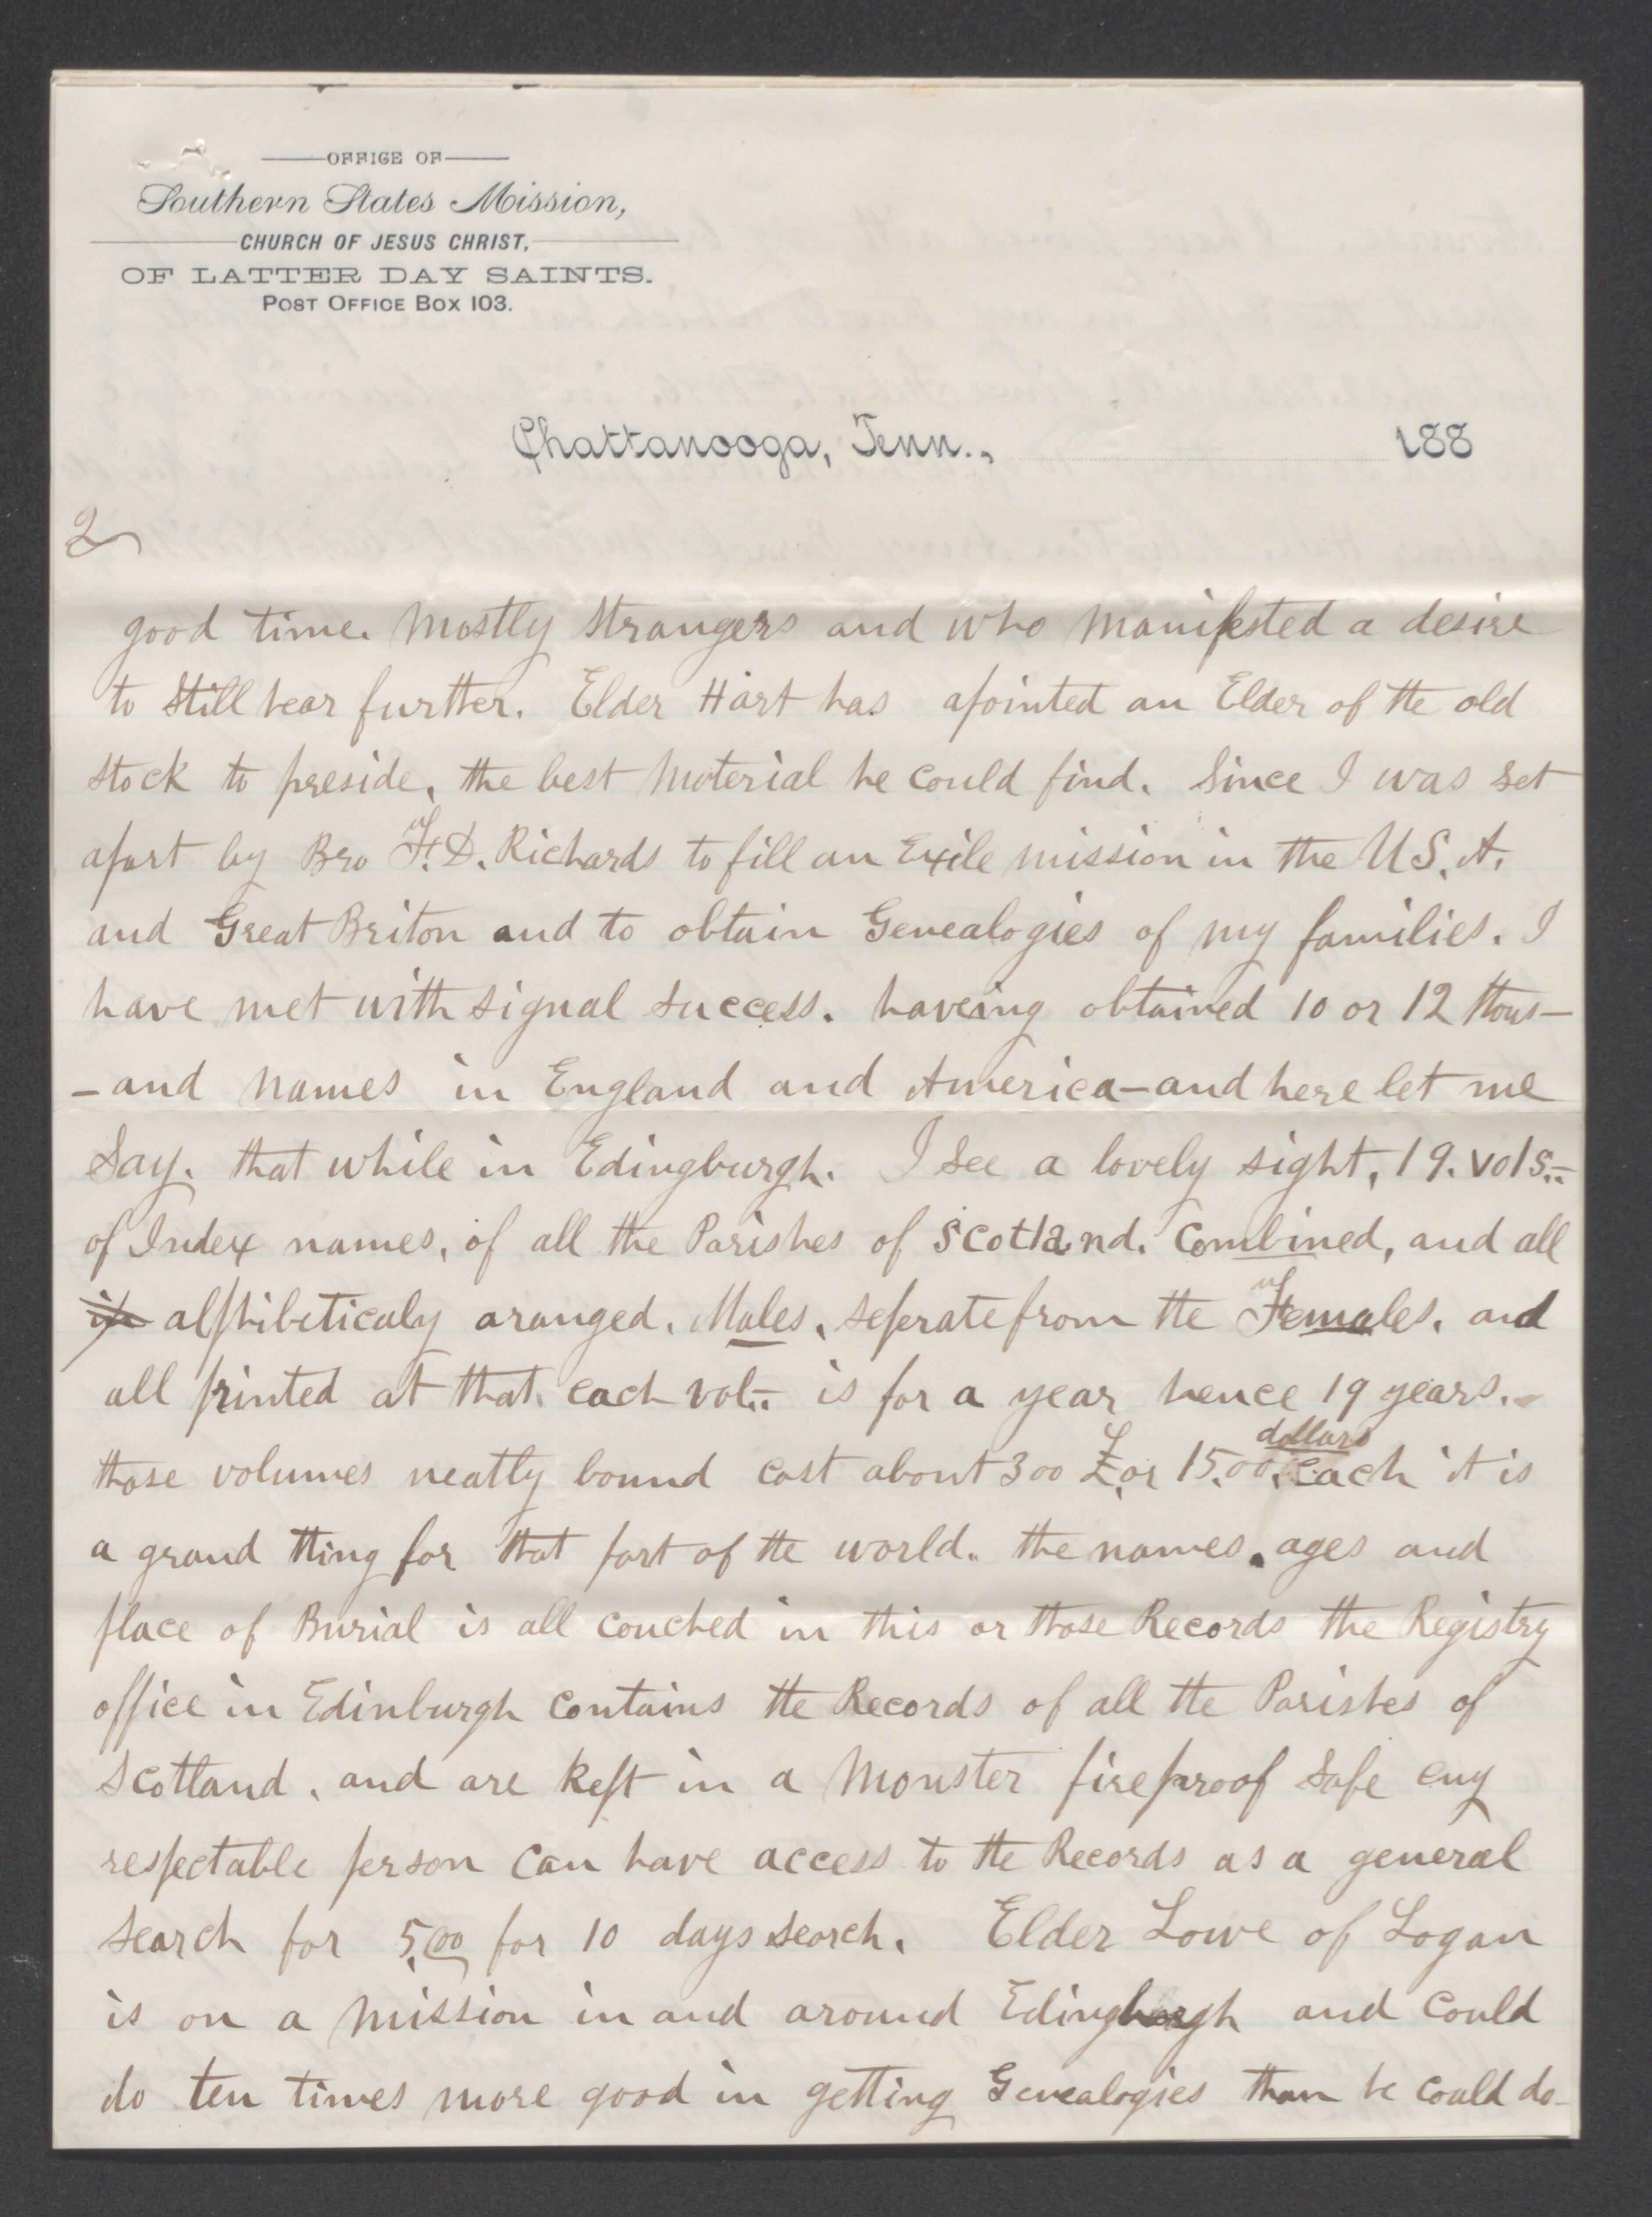 OFFICE OF
Southern States Mission,
CHURCH OF JESUS CHRIST,
OF LATTER DAY SAINTS.
POST OFFICE BOX 103.
Chattanooga, Tenn., 188
2
good time. Mostly Strangers and who Manifested a desire
to Still hear further. Elder Hart has apointed an Elder of the old
stock to preside, the best Material he could find. Since I was set
apart by Bro F. D. Richards to fill an Exile mission in the U S. A.
and Great Briton and to obtain Genealogies of my families. I
have met with signal success. haveing obtained 10 or 12 thous-
-and names in England and America-and here let me
Say. that while in Edingburgh. I see a lovely sight, 19. vols..
of Index names, of all the Parishes of Scotland. Combined, and all
alphibeticaly aranged. Males, seperate from the Females. and
all printed at that. each vol.. is for a year hence 19 years.
those volumes neatly bound cost about 300 £. or 15.00. dollars each it is
a grand thing for that part of the world. the names. ages and
place of Burial is all couched in this or those Records the Registry
office in Edinburgh contains the Records of all the Parishes of
Scotland, and are kept in a Monster fireproof safe eny
respectable person can have access to the Records as a general
search for 5.00 for 10 days search. Elder Lowe of Logan
is on a Mission in and around Edingburgh and could
do ten times more good in getting Genealogies than he could do-